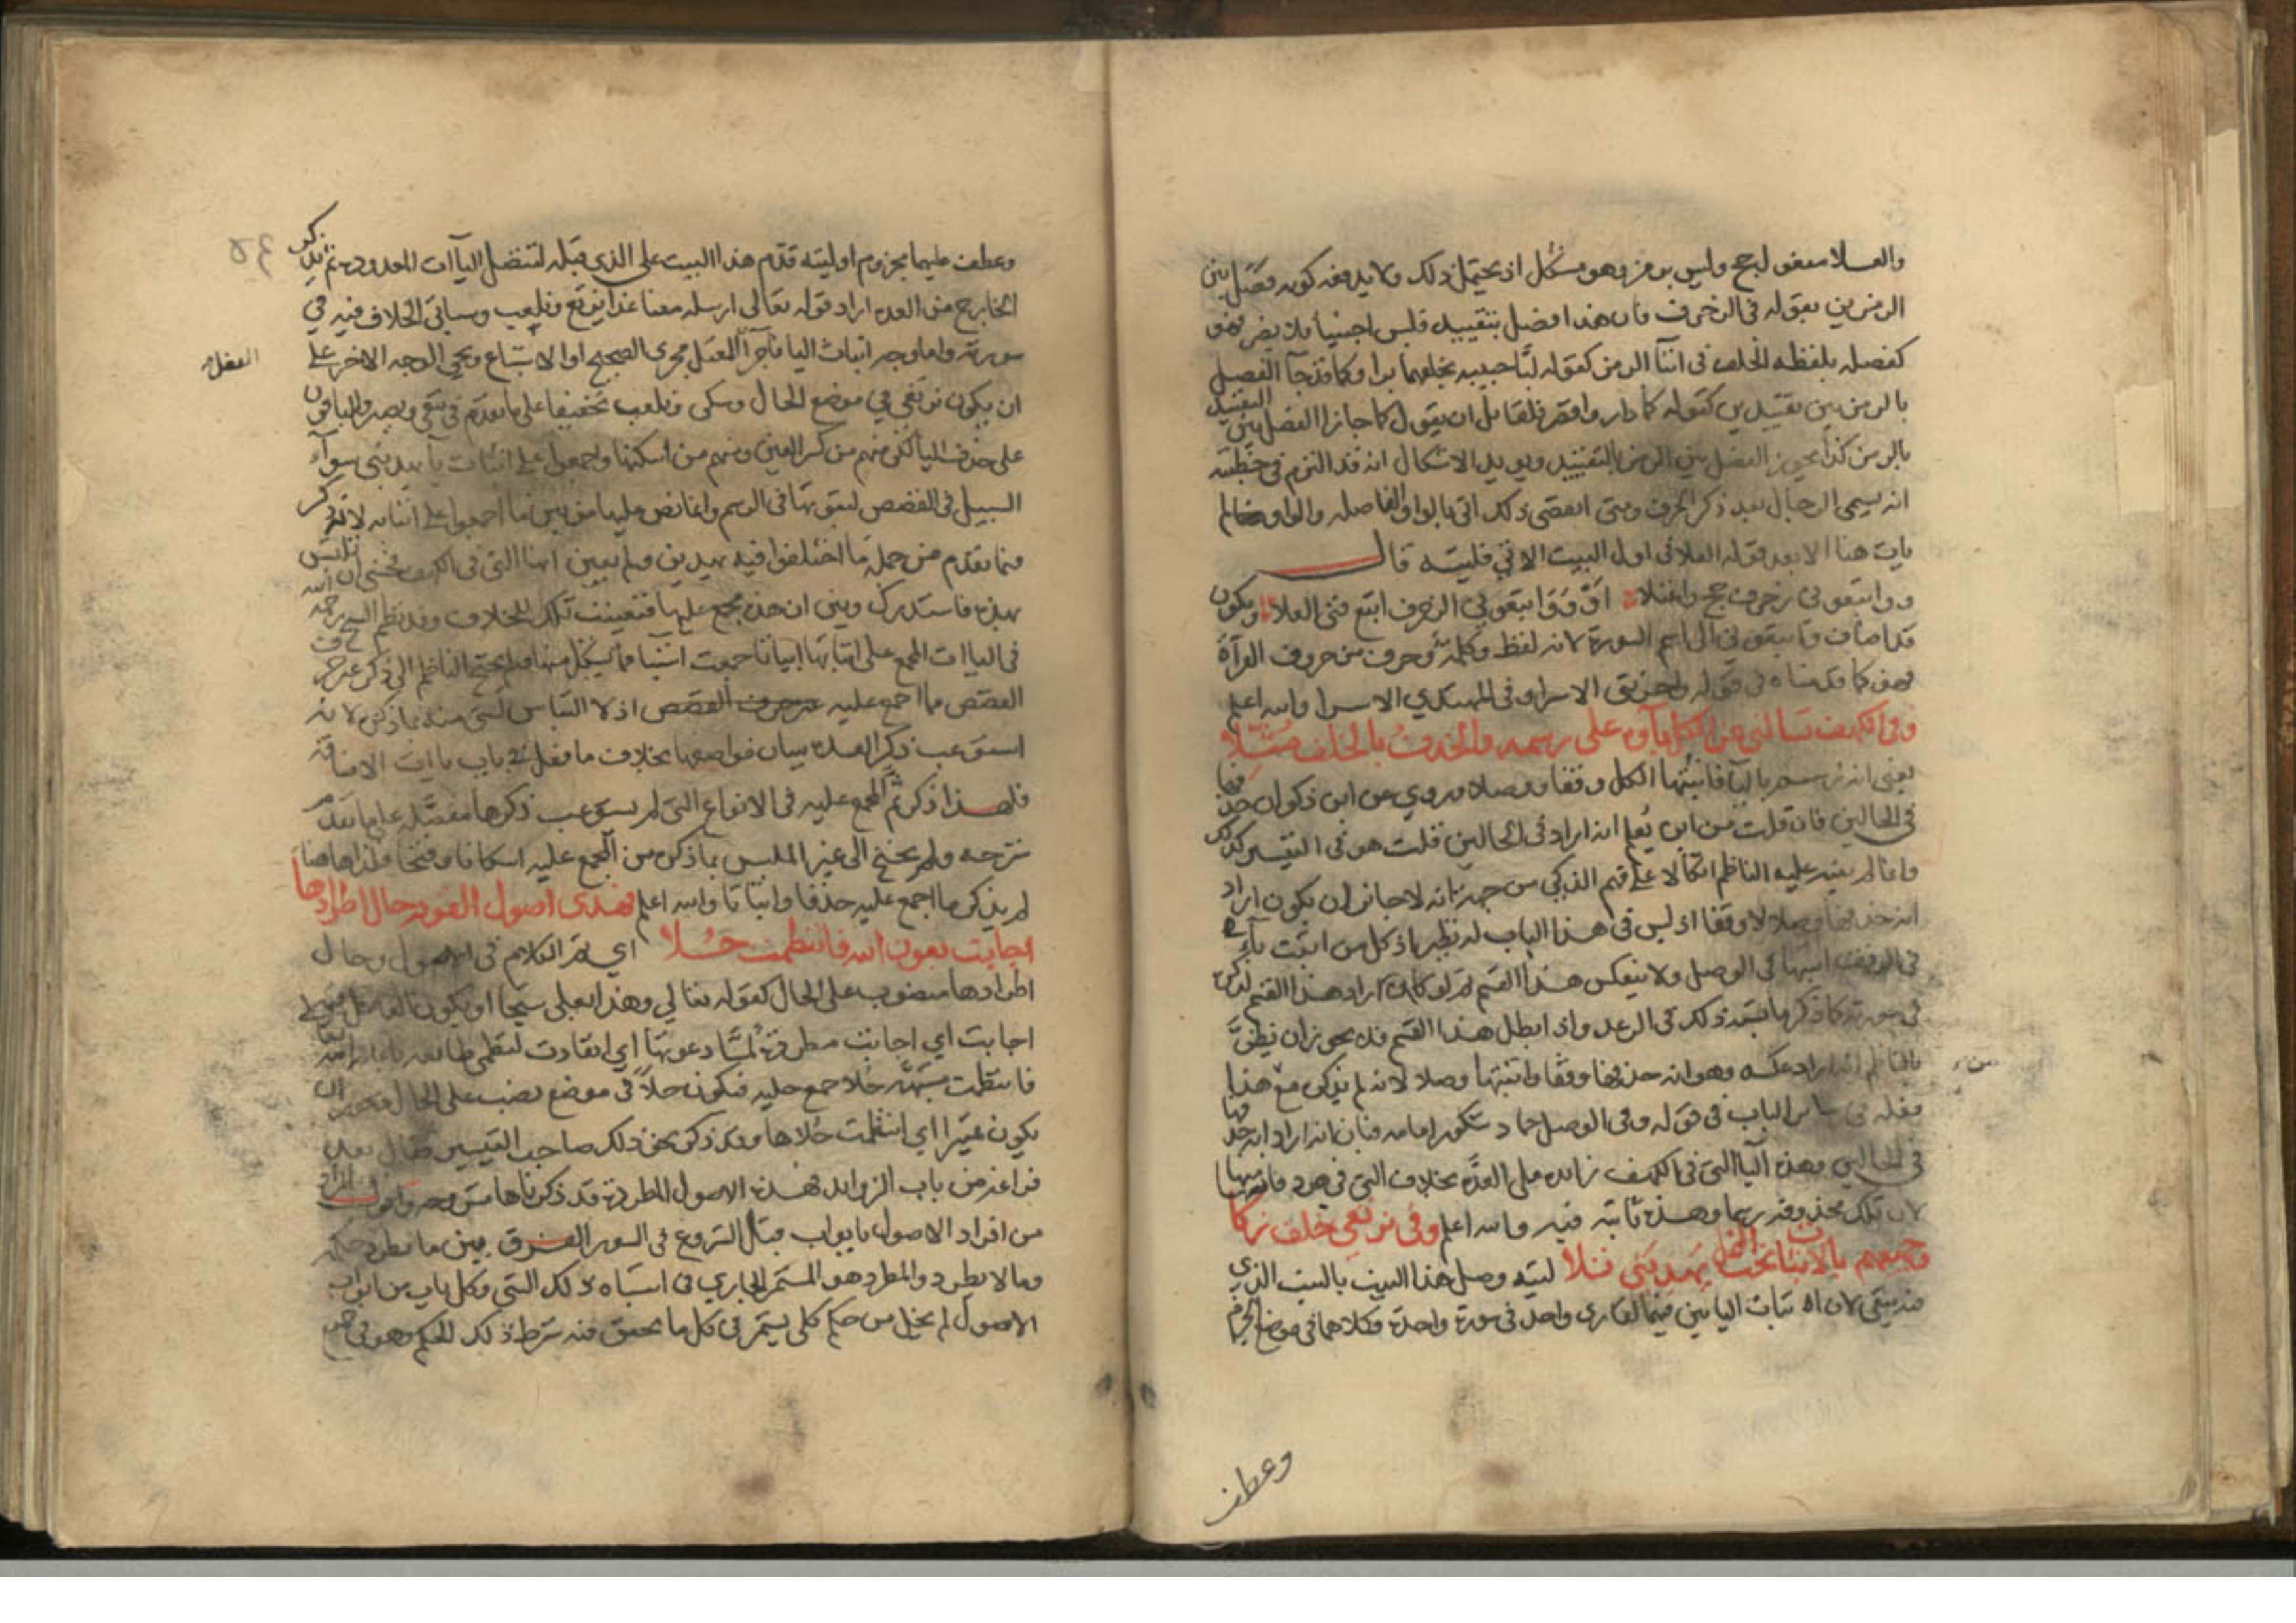 والعلا مفعول لحج وليس برمز وهو مشكل اذ يحتمل ذلك ولا يدفعه كونه فصل بين
الرمزين بقوله في الزخرف فان هذا فصل بتقييد فليس اجنبيا فلا يضر فهو
كفصله بلفظه الخلف في اثنا الرمز كقوله لبا حبيبه بخلفهما برا وكما قد جآ الفصل
بالرمز بين تقييدين كقوله كما دار واقصر فلقائل ان يقول كما جاز الفصل بين التقييد
بالرمز كذا يجوز الفصل بين الرمز بالتقييد ويويد الاشكال انه قد التزم في خطبته
انه يسمى الرجال بعد ذكر الحرف ومتى انقضى ذلك اتى بالواو الفاصله والواو لم
يات هنا الا بعد قوله العلا في اول البيت الاتي فليته قال
وواتبعوني زخرف حج واعتلا او وواتبعوني في الزخرف اتبع فتى العلا ويكون
قد اضاف واتبعوني الى اسم السورة لانه لفظ وكلمة وحرف من حروف القرآة
فهو كما قدمناه في قوله واخرتني الاسرا وفي المهتدي الاسرا والله اعلم
وفي الكهف تسالني عن الكل ياؤه على رسمه والحذف بالخلف مثلا
يعني انه رسم باليا فاثبتها الكل وقفا ووصلا وروي عن ابن ذكوان حذفها
في الحالين فان قلت من اين يعلم انه اراد في الحالين قلت هو في التيسير كذلك
وانما لم ينبه عليه الناظم اتكالا على فهم الذكي من جهة انه لا جائز ان يكون اراد
انه حذفها وصلا لا وقفا اذ ليس في هذا الباب له نظير اذ كل من اثبت يآء
في الوقف اثبتها في الوصل ولا ينعكس هذا القسم ثم لو كان اراد هذا القسم لذكره
في سورته كما ذكر ما يشبه ذلك في الرعد واذا بطل هذا القسم فلا يجوز ان يظن
بالناظم انه اراد عكسه وهو انه حذفها وقفا واثبتها وصلا لانه لم يذكره مع هذا
فعله في سائر الباب في قوله وفي الوصل حماد شكور امامه فبان انه اراد انه حذفها
في الحالين وهذه اليا التي في الكهف زائدة على العدة بخلاف التي في هود فانه منها
لان تلك محذوفة رسما وهذه ثابتة فيه والله اعلم وفي نرتعي خلف زكا
وجميعهم بالاثبات تحت النمل يهديني تلا ليته وصل هذا البيت بالبيت الذي
فيه يتقي لان اثبات اليا بين فيهما لقارى واحد في سورة واحدة وكلاهما في موضع الجزم
وعطف
وعطف عليهما مجزوم او ليته قدم هذا البيت على الذي قبله لتتصل اليآات المعدودة ثم يذكر
الخارج من العدة اراد قوله تعالى ارسله معنا غدا نرتع ونلعب وسياتي الخلاف فيه في
سورته واما وجه اثبات اليا فاجرآ المعتل مجرى الصحيح او الاشباع ويجي الوجه الاخر على
ان يكون نرتعي في موضع الحال وسكن ونلعب تخفيفا على ما تقدم في يتقي ويصبر والباقون
على حذف اليا لكن منهم من كسر العين ومنهم من اسكنها واجمعوا على اثبات يآ يهديني سوآء
السبيل في القصص لثبوتها في الرسم وانما نص عليها من بين ما اجمعوا على اثباته لانه ذكر
فيما تقدم من جملة ما اختلفوا فيه يهدين ولم يعين انها التي في الكهف فخشي ان تلتبس
بهذه فاستدرك وبين ان هذه مجمع عليها فتعينت تلك للخلاف وقد نظم الشيخ رحمه الله
في الياات المجمع على اثباتها ابياتا جمعت اشيا مما يشكل منها ولم يحتج الناظم الى ذكر غير حرف
القصص مما اجمع عليه غير حرف القصص اذ لا التباس لشي منه بما ذكره لانه
استوعب ذكر العدة ببيان مواضعها بخلاف ما فعل في باب ياات الاضافة
فلهذا ذكر ثم المجمع عليه في الانواع التي لم يستوعب ذكرها مفصلة على ما تقدم
شرحه ولم يحتج الى غير الملبس بما ذكره من المجمع عليه اسكانا وفتحا فلذا هاهنا
لم يذكر ما اجمع عليه حذفا واثباتا والله اعلم فهذي اصول القوم حال اطرادها
اجابت بعون الله فانتظمت حلا اي تم الكلام في الاصول وحال
اطرادها منصوب على الحال كقوله تعالى وهذا بعلى شيخا او يكون العامل فيه
اجابت اي اجابت مطردة لما دعوتها اي انقادت لنظمي باعانة الله تعالى
فانتظمت مشبهة حلا جمع حلية فيكون حلا في موضع نصب على الحال ويجوز ان
يكون تمييزا اي انتظمت حلاها وقد ذكر نحو ذلك صاحب التيسير فقال بعد
فراغه من باب الزوائد فهذه الاصول المطردة قد ذكرناها مشروحه واقول المراد
من افراد الاصول بابواب قبل الشروع في السور الفرق بين ما يطرد حكمه
وما لا يطرد والمطرد هو المستمر الجاري في اشباه ذلك الشي وكل باب من ابواب
الاصول لم يخل من حكم كلي يستمر في كل ما تحقق فيه شرط ذلك الحكم وهو في